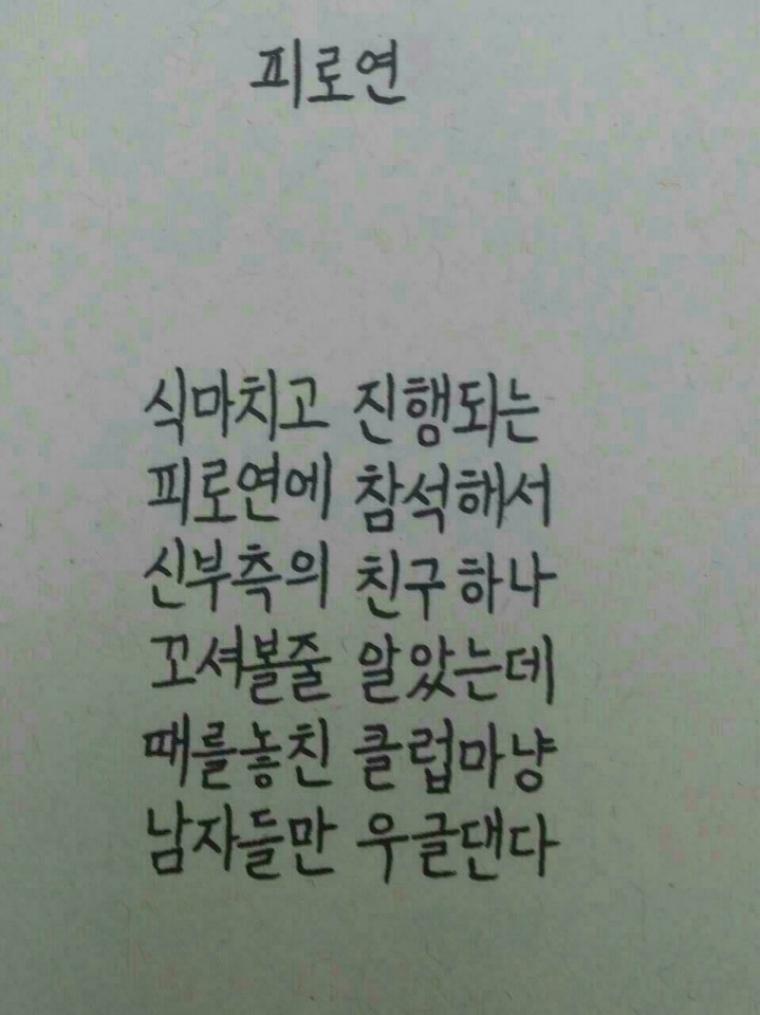 피로연
식마치고 진행되는
피로연에 참석해서
신부측의 친구하나
꼬셔볼줄 알았는데
때를놓친 클럽마냥
남자들만 우글댄다